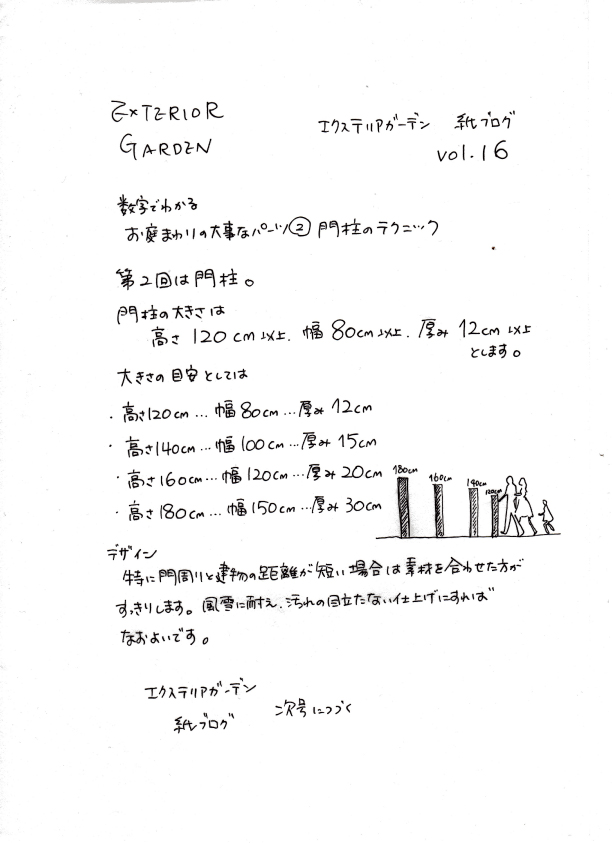 EXTERIOR
GARDEN
エクステリアガーデン 紙ブログ
vol.16
数字でわかる
お庭まわりの大事なパーツ② 門柱のテクニック
第2回は門柱。
門柱の大きさは
高さ 120cm以上. 幅 80cm以上. 厚み 12cm以上
とします。
大きさの目安としては
・高さ120cm…幅80cm…厚み12cm
・高さ140cm…幅100cm…厚み15cm
・高さ160cm…幅120cm…厚み20cm
・高さ180cm…幅150cm…厚み30cm
180cm 160cm 140cm 120cm
デザイン
特に門周りと建物の距離が短い場合は素材を合わせた方が
すっきりします。風雪に耐え.汚れの目立たない仕上げにすれば
なおよいです。
エクステリアガーデン
紙ブログ 次号につづく